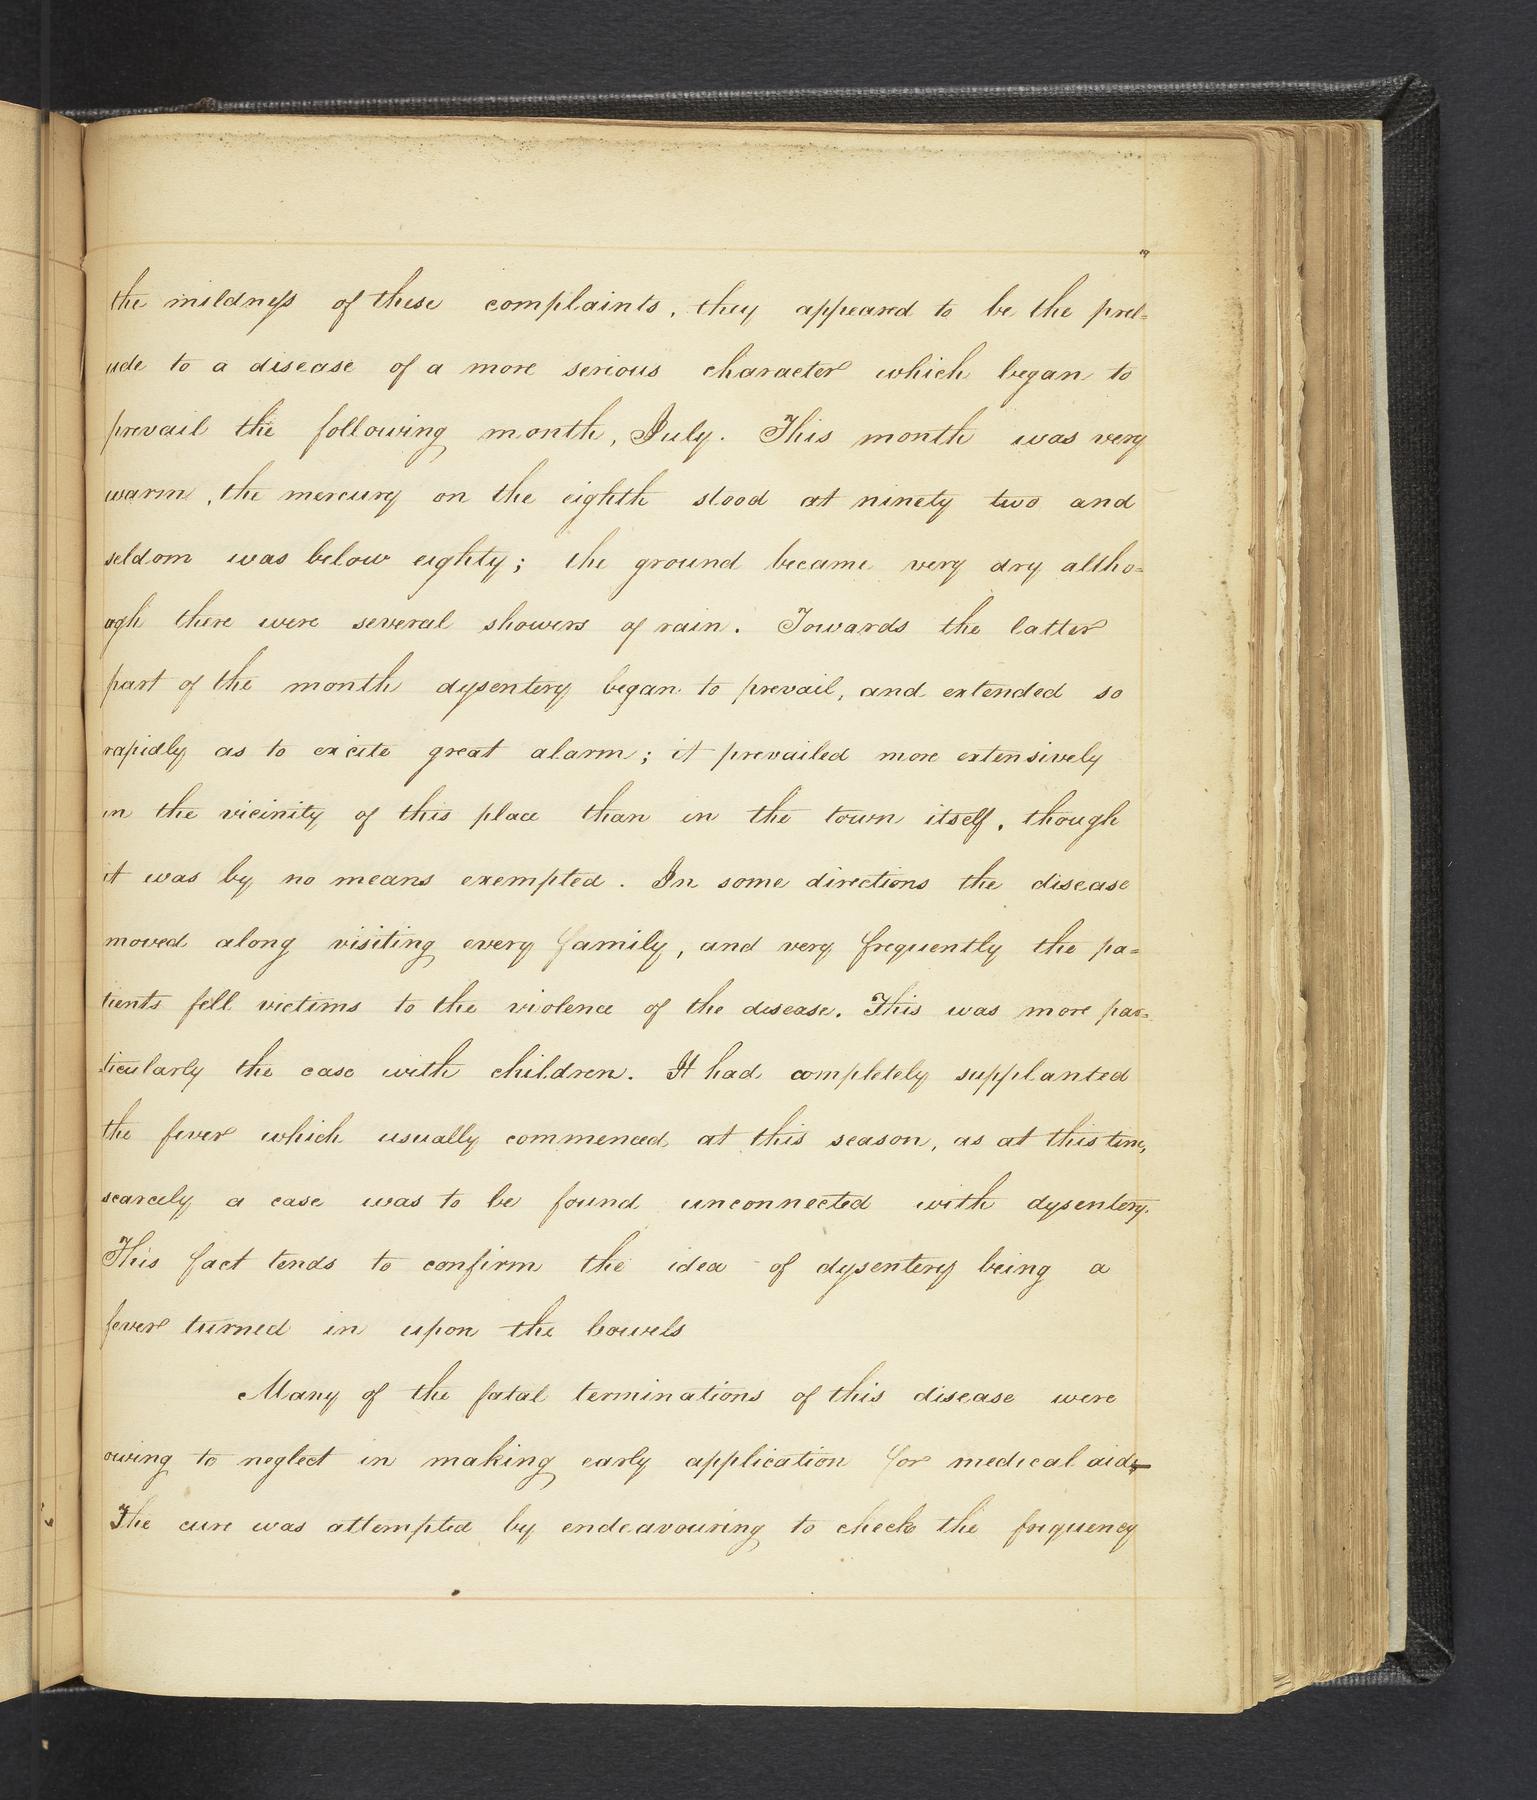 the mildness of these complaints, they appeared to be the prel=
ude to a disease of a more serious character which began to
prevail the following month, July. This month was very
warm, the mercury on the eighth stood at ninety two and
seldom was below eighty; the ground became very dry altho=
ogh there were several showers of rain. Towards the latter
part of the month dysentery began to prevail, and extended so
rapidly as to excite great alarm; it prevailed more extensively
in the vicinity of this place than in the town itself, though
it was by no means exempted. In some directions the disease
moved along visiting every family, and very frequently the pa=
tients fell victims to the violence of the disease. This was more par=
ticularly the case with children. It had completely supplanted
the fever which usually commenced at this season, as at this time,
scarcely a case was to be found unconnected with dysentery.
This fact tends to confirm the idea of dysentery being a
fever turned in upon the bowels
Many of the fatal terminations of this disease were
owing to neglect in making early application for medical aid.
The cure was attempted by endeavouring to check the frequency